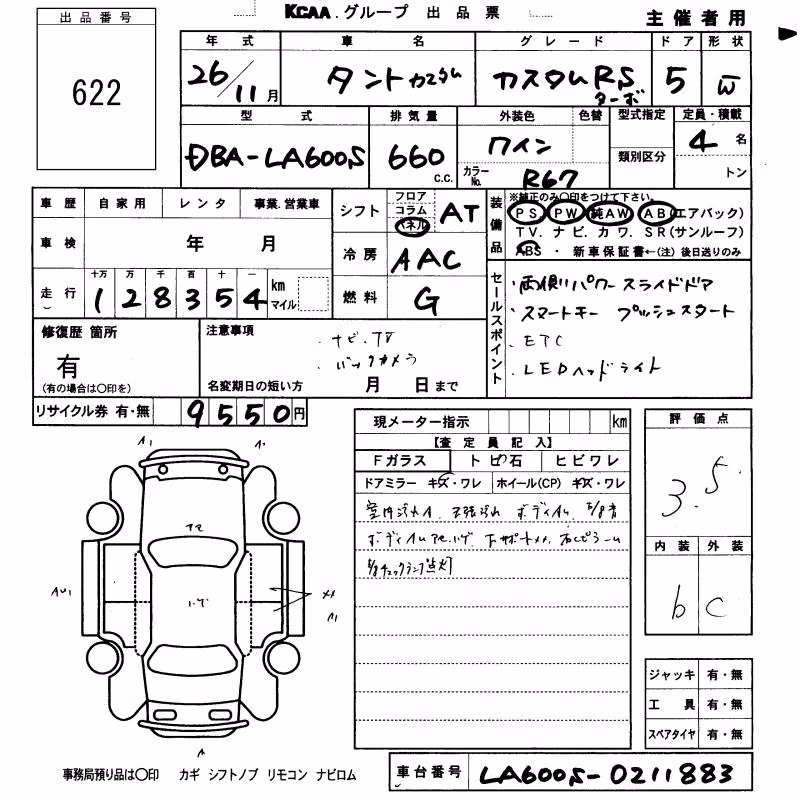 KCAA.グループ 出品票
主催者用
出品番号
622
年式 車名 グレード ドア 形状
26/11月 タントカスタム カスタムRS ターボ 5 W
型式 排気量 外装色 色替 型式指定 定員・積載
DBA-LA600S 660 c.c. ワイン 類別区分 4 名
カラーNo. R67 トン
車歴 自家用 レンタ 事業.営業車
車検 年 月
走行 十万 万 千 百 十 一 km マイル
128354
シフト フロア コラム パネル AT
冷房 AAC
燃料 G
装備品
※純正のみ○印をつけて下さい。
PS. PW 純AW ABエアバック)
TV. ナビ. カワ. SR(サンルーフ)
ABS ・ 新車保証書←(注) 後日送りのみ
セールスポイント
・両側パワースライドドア
・スマートキー プッシュスタート
・ETC
・LEDヘッドライト
修復歴 箇所
有
(有の場合は○印を)
注意事項
・ナビ.TV
・バックカメラ
名変期日の短い方 月 日まで
リサイクル券 有・無 9550円
現メーター指示 km
【査定員記入】
Fガラス トビ石 ヒビワレ
ドアミラー キズ・ワレ ホイール(CP) キズ・ワレ
評価点
3.5
内装 外装
b c
ジャッキ 有・無
工具 有・無
スペアタイヤ 有・無
A1
事務局預り品は○印 カギ シフトノブ リモコン ナビロム
車台番号 LA600S-0211883